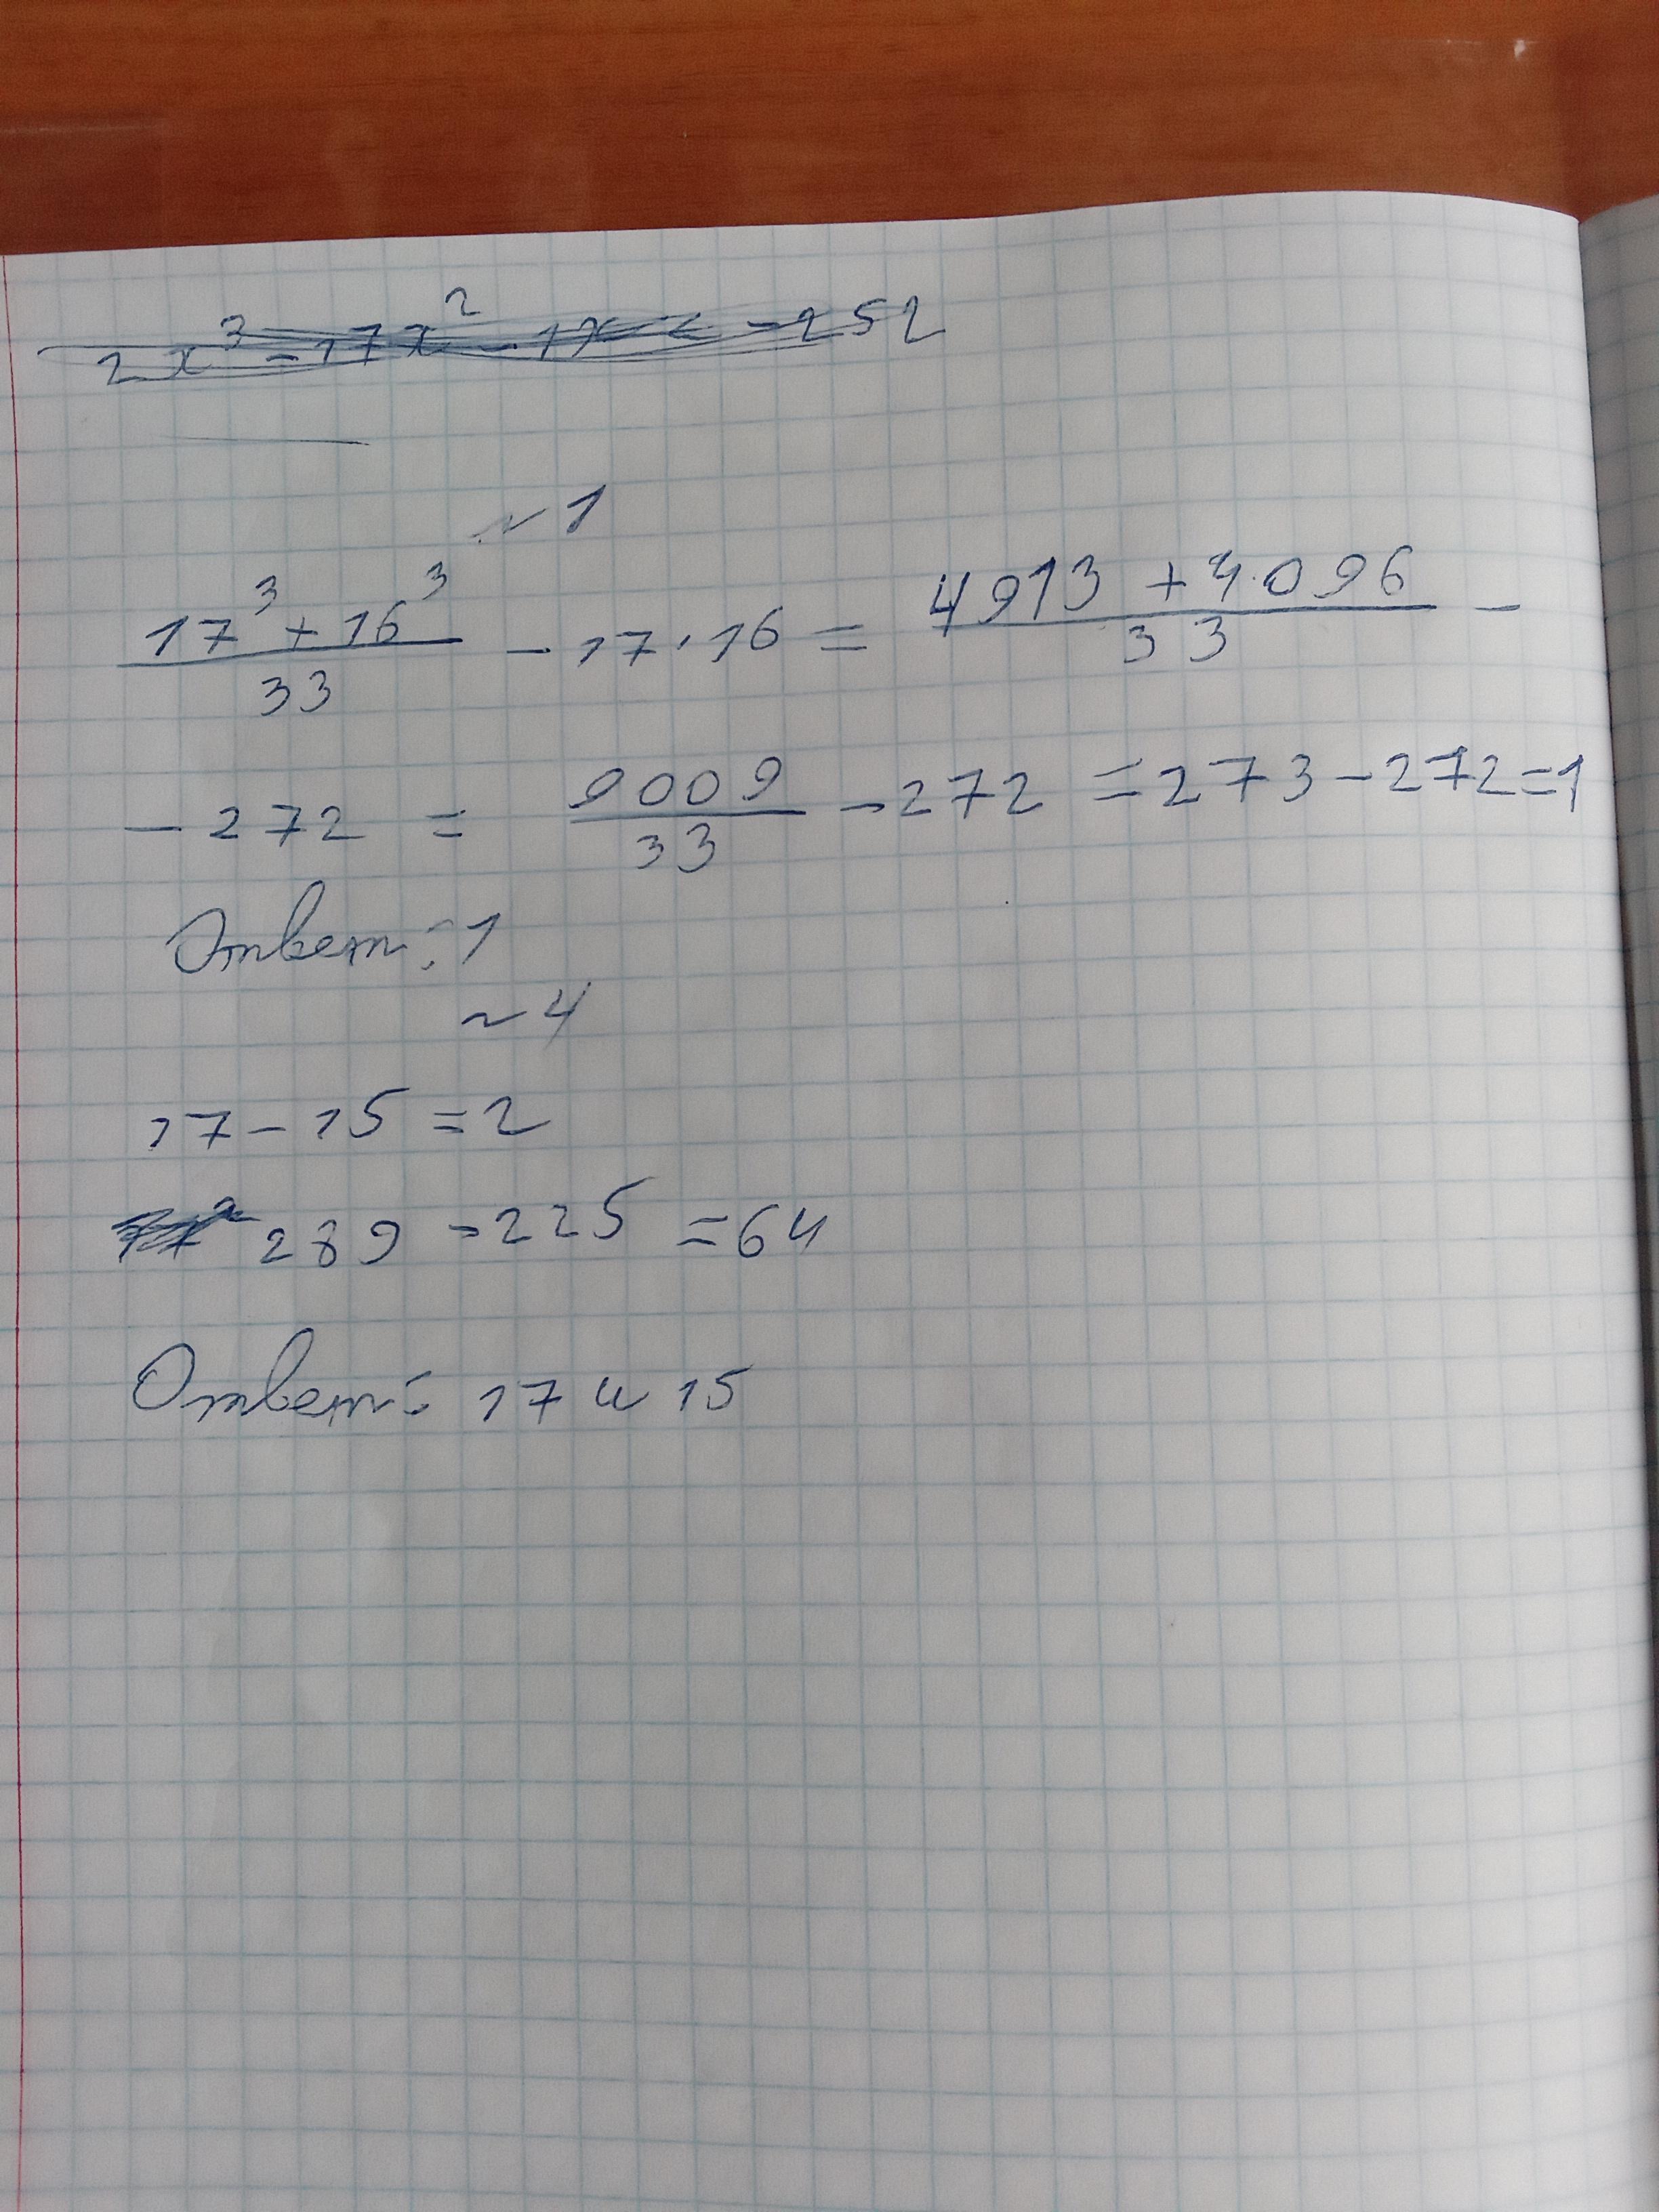 2x³ - 17x² - 1x - 252
~ 1
17³ + 16³ / 33 - 17 · 16 = 4913 + 4096 / 33 -
- 272 = 9009 / 33 - 272 = 273 - 272 = 1
Ответ: 1
~ 4
17 - 15 = 2
289 - 225 = 64
Ответ: 17 и 15